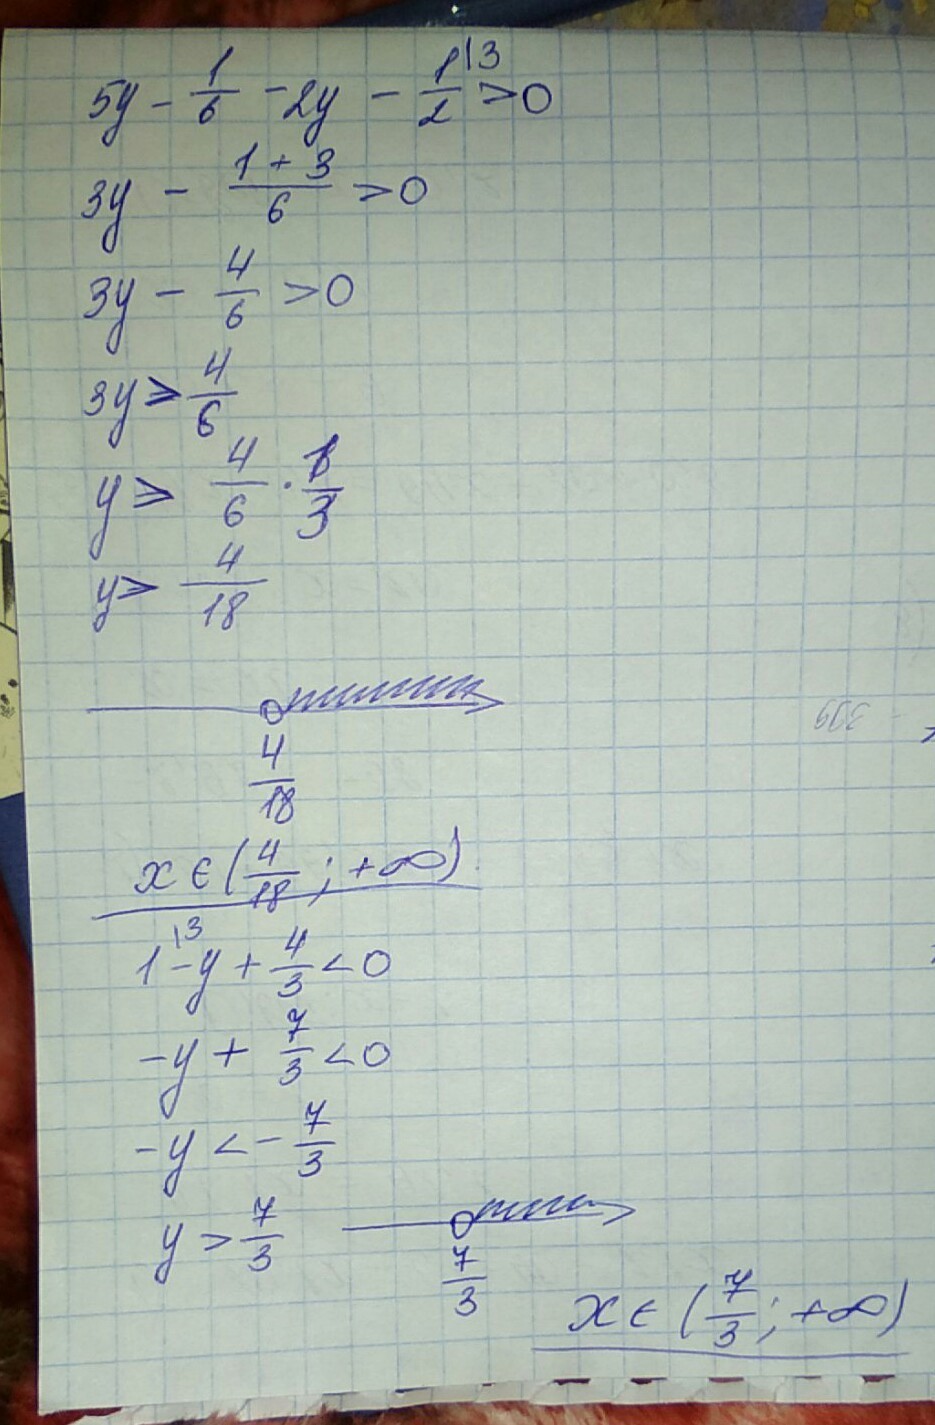 5y - 1/6 - 2y - 1/2 |3 > 0
3y - (1 + 3)/6 > 0
3y - 4/6 > 0
3y > 4/6
y > 4/6 · 1/3
y > 4/18
4/18
x ∈ (4/18 ; +∞)
1 |3 - y + 4/3 < 0
-y + 7/3 < 0
-y < - 7/3
y > 7/3
7/3
x ∈ (7/3 ; +∞)
- 399